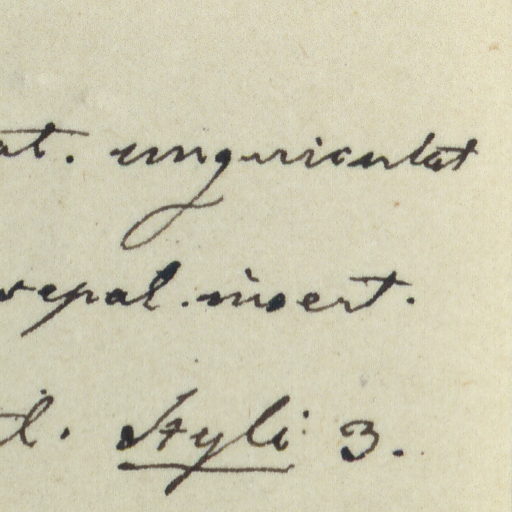 at. unguiculat
sepal. insert.
l. Styli 3.